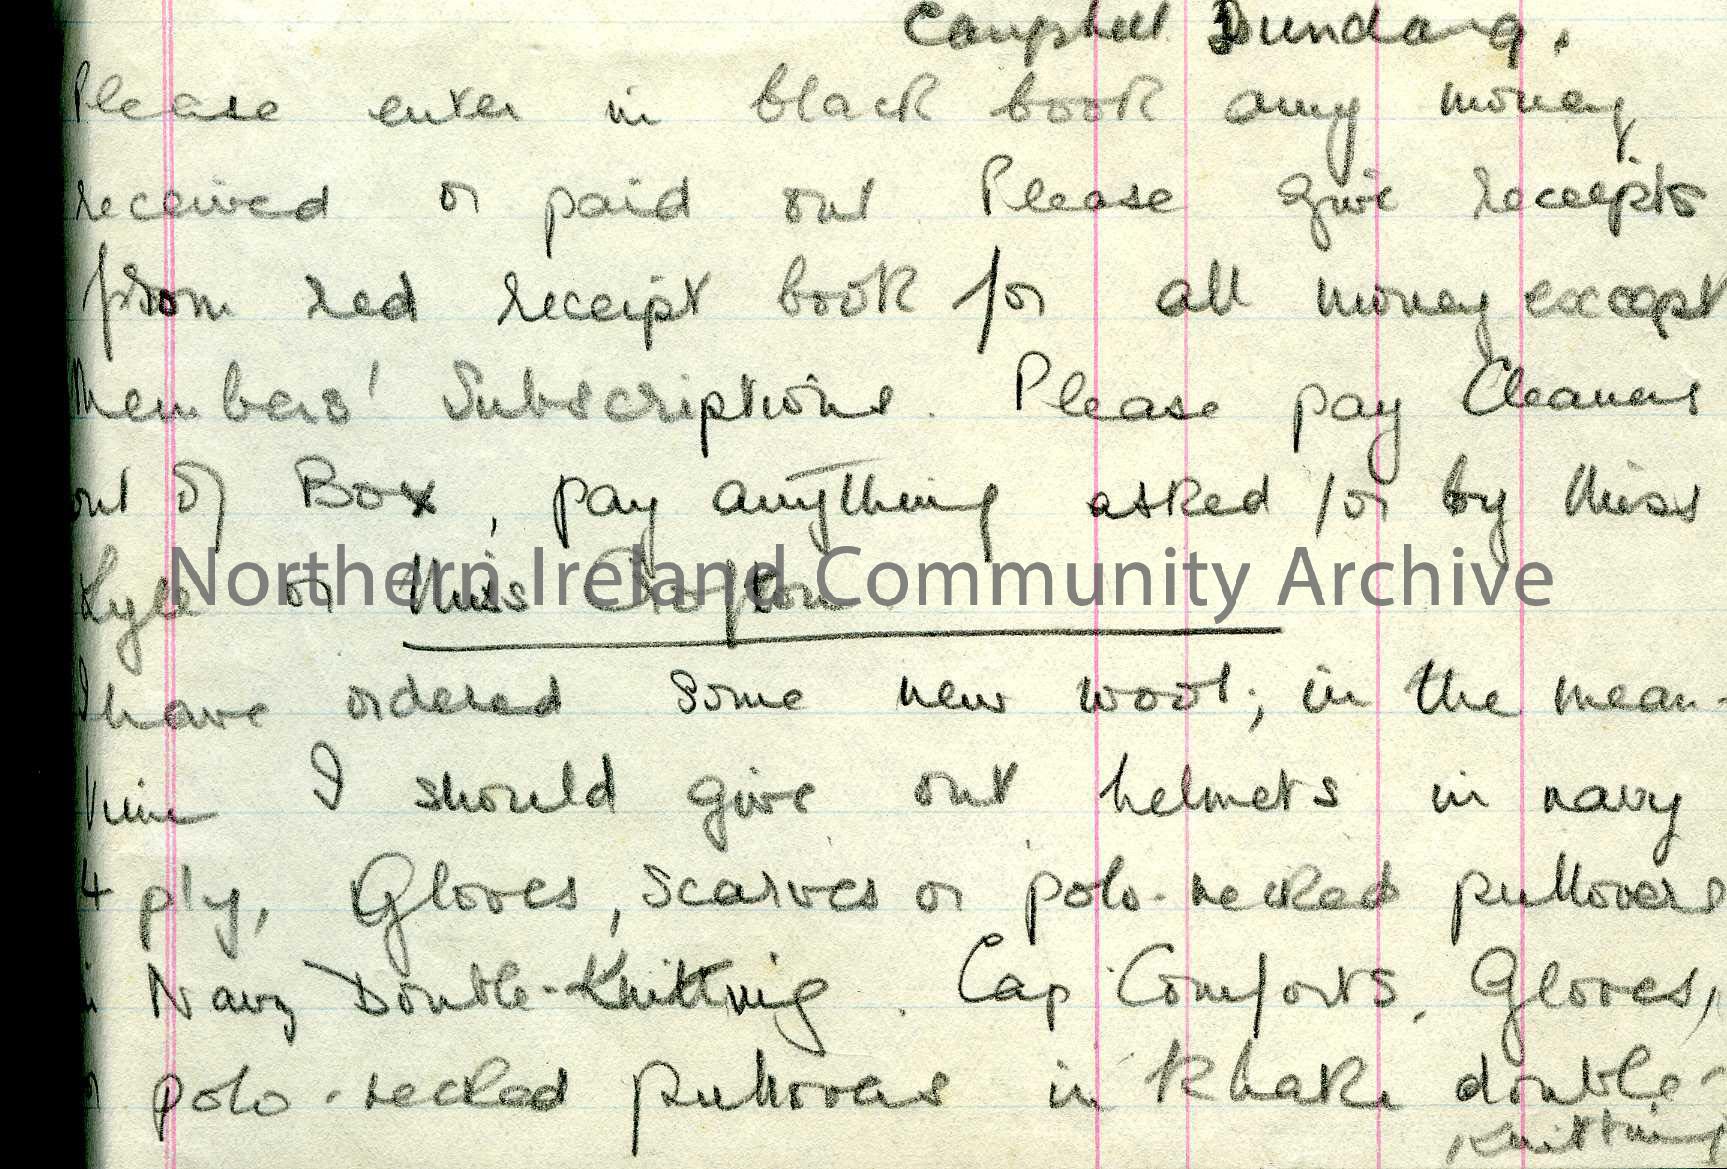 Campbell Dundarg.
Please enter in black book any money
received or paid out. Please give receipts
from red receipt book for all money except
Members' Subscriptions. Please pay Cleaners
out of Box, pay anything asked for by Miss
Kyle or Miss Crofton.
Northern Ireland Community Archive
I have ordered some new wool; in the mean-
time I should give out helmets in navy
4 ply, Gloves, Scarves or polo-necked pullovers
in Navy Double-Knitting. Cap Comforts, Gloves,
or polo-necked pullovers in Khaki double-
Knitting